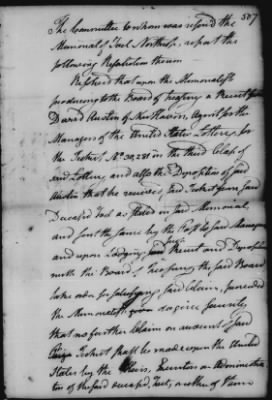 507
The Committee to whom was referd the
Memorial of Joel Northrop, report the
following Resolution thereon
Resolved that upon the Memorialist
producing to the Board of treasury a Receipt from
David Austin of New Haven, Agent for the
Managers of the United States Lottery, for
the Ticket No. 30,281 in the third Class of
said Lottery, and also the Deposition of said
Austin that he received said Ticket from said
Deceased Joel as stated in said Memorial,
and sent the same by the Post to said Managers
and upon Lodging such Receipt and Deposition
with the Board of Treasury, the said Board
take order for satisfying said Claim, provided
the Memorialist give Security
that no further Claim on account of said
Ticket shall be made upon the United
States by the Heirs, Executors or Administra
tors of the said deceased Joel, or either of them